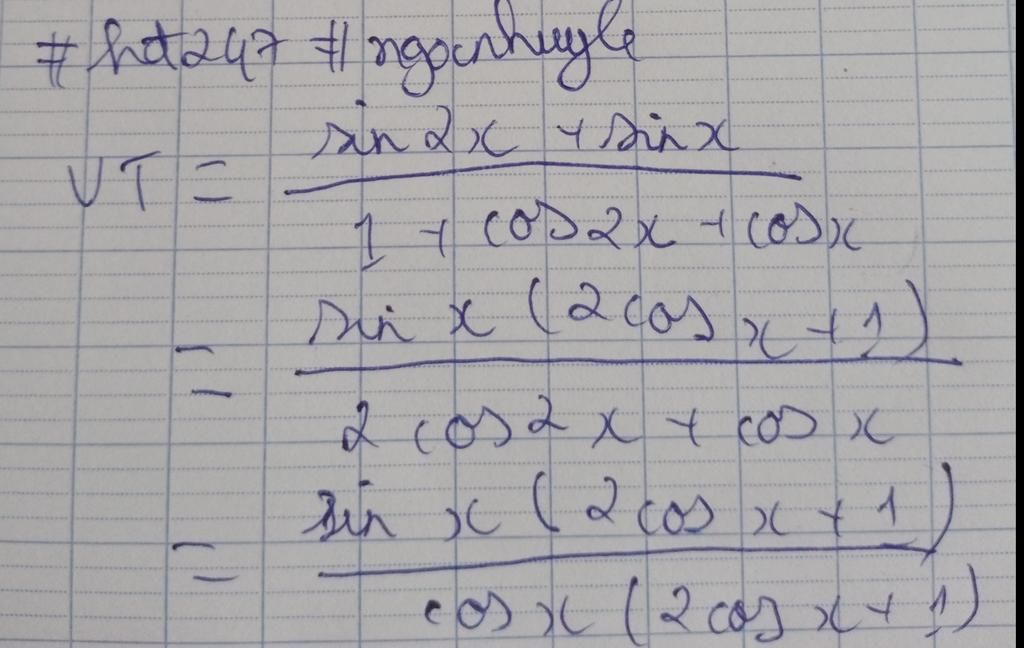 # hd247 # ngocnhuyle
VT = sin 2x + sin x
1 + cos 2x + cos x
= sin x (2 cos x + 1)
2 cos 2x + cos x
= sin x (2 cos x + 1)
cos x (2 cos x + 1)